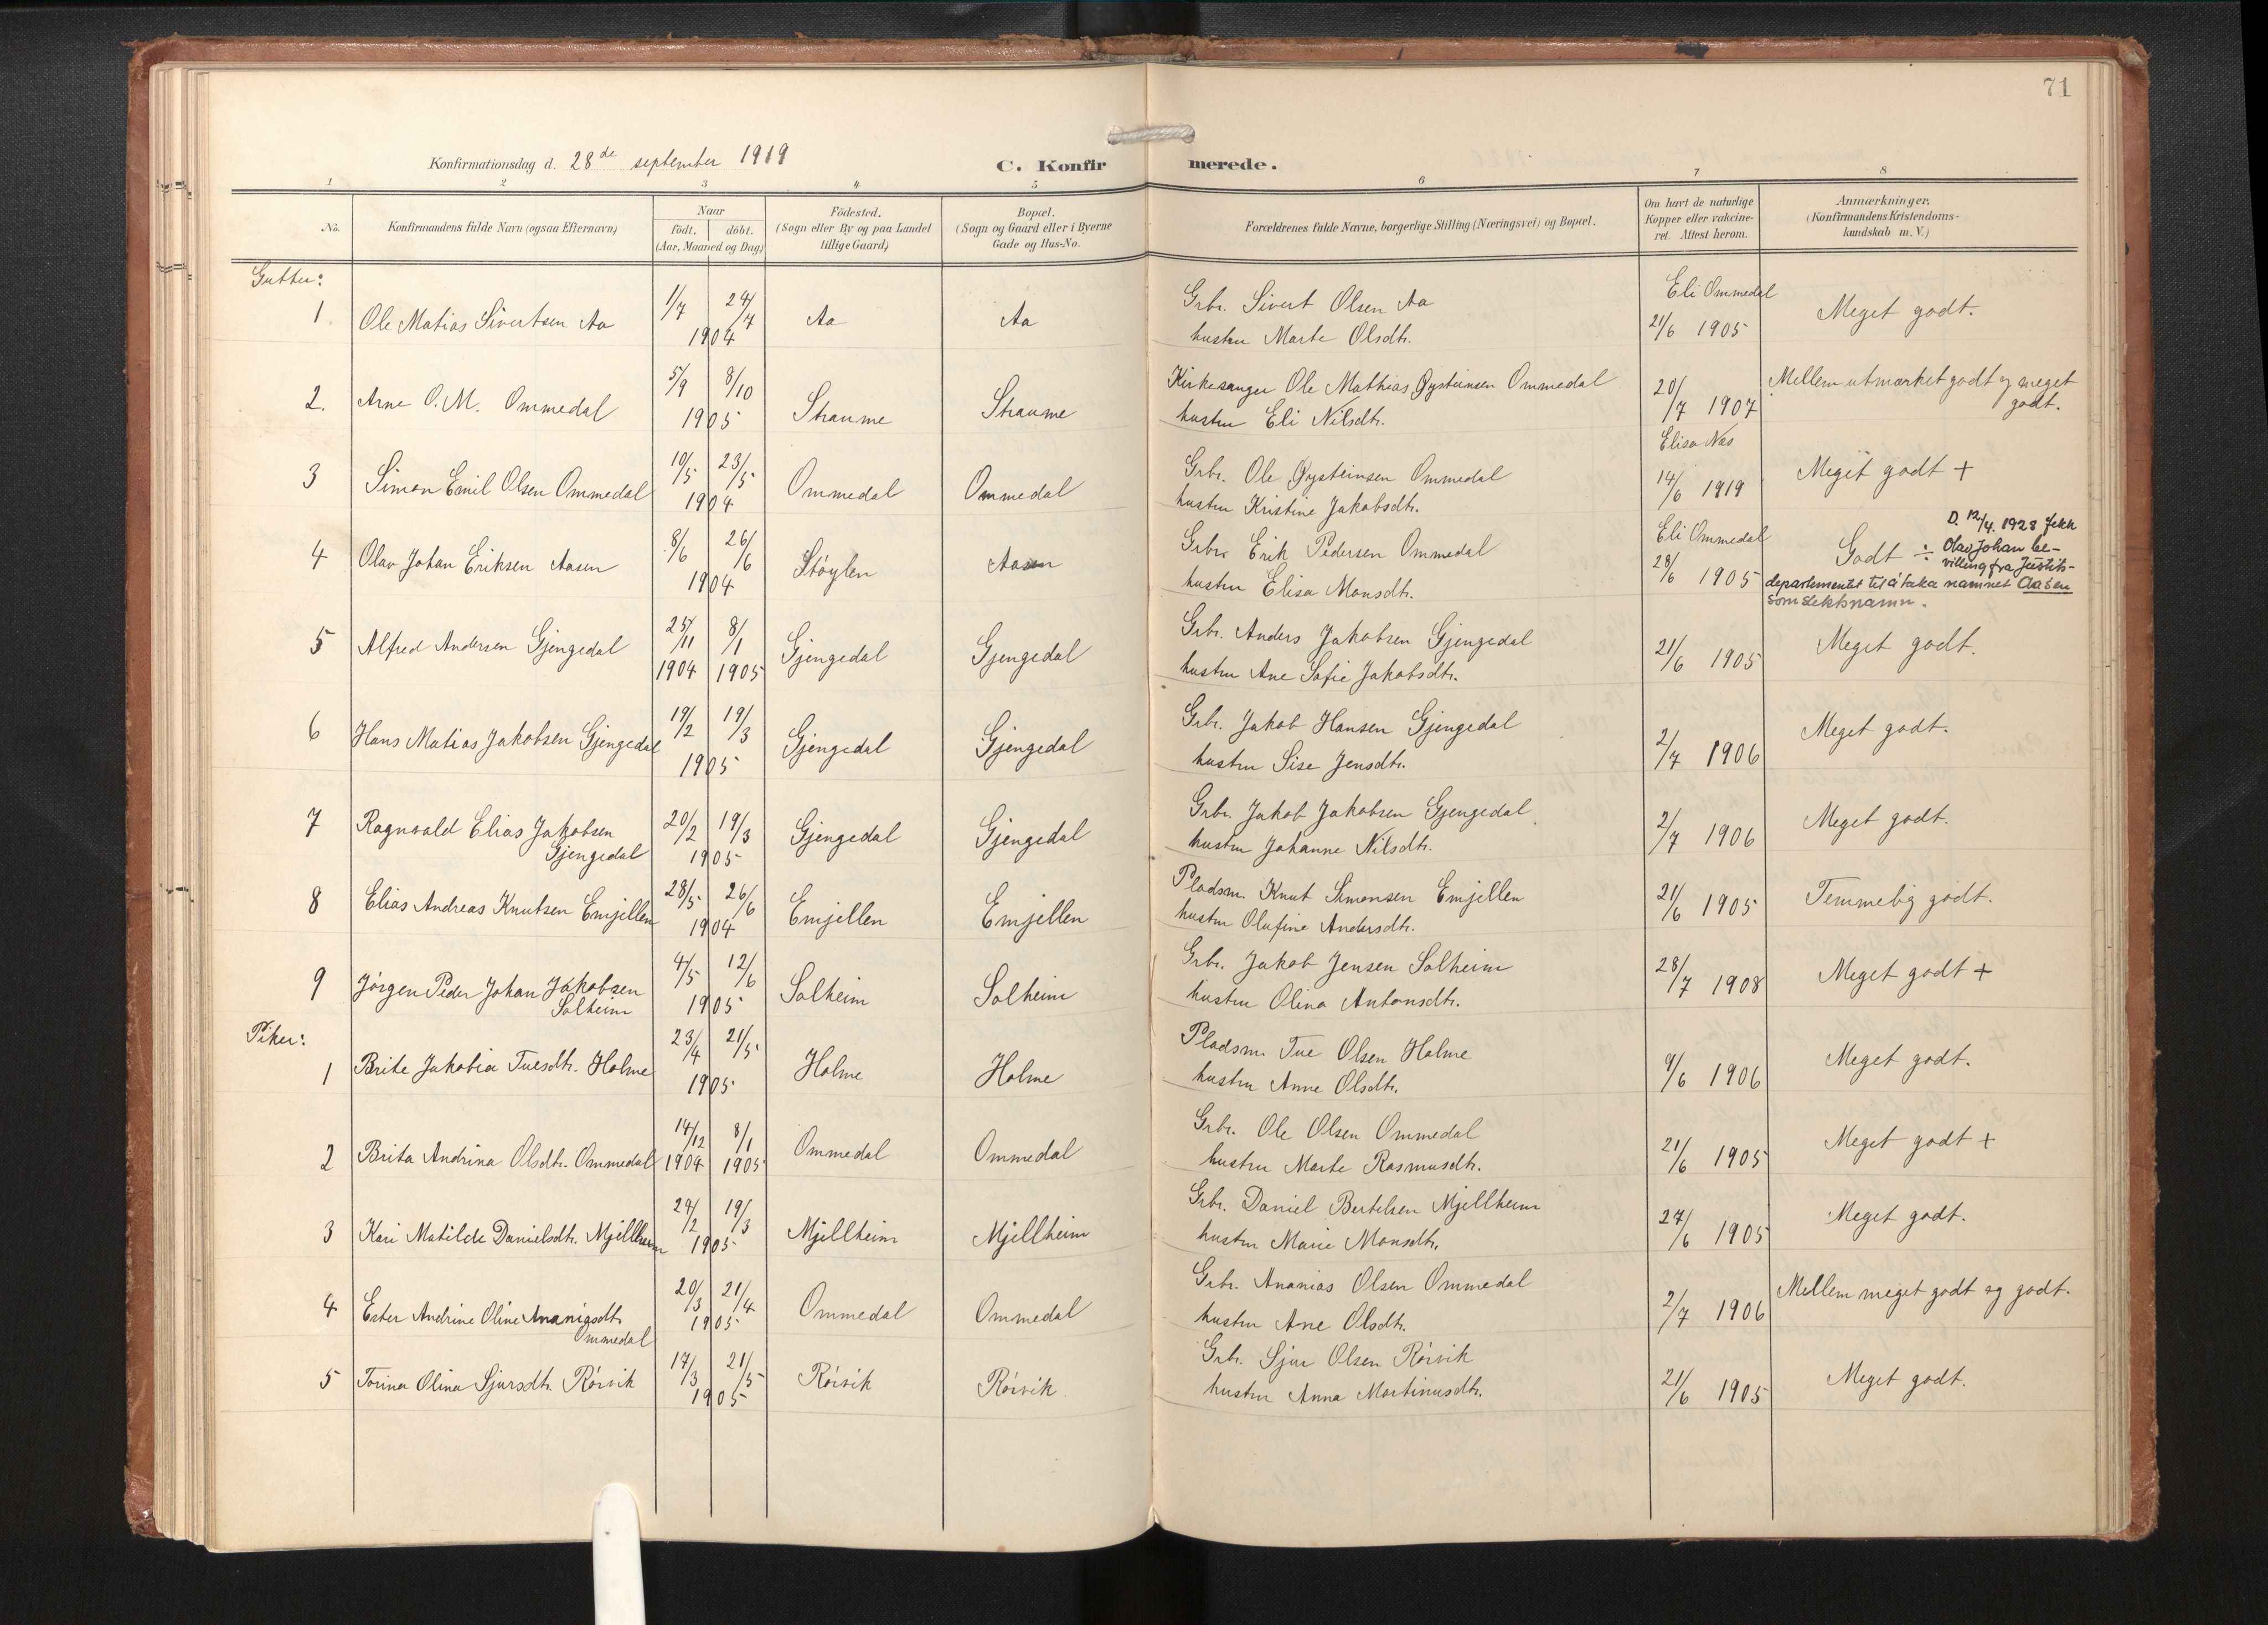 71
Konfirmationsdag d. 28de september 1919
C. Konfirmerede.
1 2 3 4 5 6 7 8
No.
Konfirmandens fulde Navn (ogsaa Efternavn)
Naar
født. døbt.
(Aar, Maaned og Dag)
Fødested.
(Sogn eller By og paa Landet
tillige Gaard)
Bopæl.
(Sogn og Gaard eller i Byerne
Gade og Hus-No.
Forældrenes fulde Navne, borgerlige Stilling (Næringsvei) og Bopæl.
Om havt de naturlige
Kopper eller vakcine-
ret. Attest herom.
Anmærkninger.
(Konfirmandens Kristendoms-
kundskab m. V.)
Gutter:
1 Ole Matias Sivertsen Aa 1/7 24/7 1904 Aa Aa
Grbr. Sivert Olsen Aa
hustru Marte Olsdtr.
Eli Ommedal
21/6 1905
Meget godt.
2. Arne O. M. Ommedal 5/9 8/10 1905 Straume Straume
Kirkesanger Ole Mathias Øysteinsen Ommedal
hustru Eli Nilsdtr.
20/7 1907
Mellem utmerket godt og meget
godt.
3 Simon Emil Olsen Ommedal 10/5 23/5 1904 Ommedal Ommedal
Grbr. Ole Øysteinsen Ommedal
hustru Kristine Jakobsdtr.
Elisa Nes
14/6 1919
Meget godt +
4 Olav Johan Eriksen Aasen 8/6 26/6 1904 Støylen Aasen
Grbr. Erik Pedersen Ommedal
hustru Elisa Monsdtr.
Eli Ommedal
28/6 1905
Godt ÷
D. 12/4. 1928 fekk
Olav Johan be-
villing fra Justits-
departementet til å taka namnet Aasen
som slektsnamn.
5 Alfred Andersen Gjengedal 25/11 1904 8/1 1905 Gjengedal Gjengedal
Grbr. Anders Jakobsen Gjengedal
hustru Ane Sofie Jakobsdtr.
21/6 1905
Meget godt.
6 Hans Matias Jakobsen Gjengedal 19/2 19/3 1905 Gjengedal Gjengedal
Grbr. Jakob Hansen Gjengedal
hustru Sise Jensdtr.
2/7 1906
Meget godt.
7 Ragnvald Elias Jakobsen
Gjengedal 20/2 19/3 1905 Gjengedal Gjengedal
Grbr. Jakob Jakobsen Gjengedal
hustru Johanne Nilsdtr.
2/7 1906
Meget godt.
8 Elias Andreas Knutsen Emjellen 28/5 26/6 1904 Emjellen Emjellen
Pladsm. Knut Simonsen Emjellen
hustru Olufine Andersdtr.
21/6 1905
Temmelig godt.
9 Jørgen Peder Johan Jakobsen
Solheim 4/5 12/6 1905 Solheim Solheim
Grbr. Jakob Jensen Solheim
hustru Olina Antonsdtr.
28/7 1908
Meget godt +
Piker:
1 Brite Jakobia Tuesdtr. Holme 23/4 21/5 1905 Holme Holme
Pladsm. Tue Olsen Holme
hustru Anne Olsdtr.
9/6 1906
Meget godt.
2 Brita Andrina Olsdtr. Ommedal 14/12 1904 8/1 1905 Ommedal Ommedal
Grbr. Ole Olsen Ommedal
hustru Marte Rasmusdtr.
21/6 1905
Meget godt +
3 Kari Matilde Danielsdtr. Mjellheim 24/2 19/3 1905 Mjellheim Mjellheim
Grbr. Daniel Bertelsen Mjellheim
hustru Marie Monsdtr.
27/6 1905
Meget godt.
4 Ester Andrine Oline Ananiasdtr.
Ommedal 20/3 21/4 1905 Ommedal Ommedal
Grbr. Ananias Olsen Ommedal
hustru Ane Olsdtr.
2/7 1906
Mellem meget godt og godt.
5 Torina Olina Sjursdtr. Rörvik 17/3 21/5 1905 Rörvik Rörvik
Grbr. Sjur Olsen Rörvik
hustru Anna Martinusdtr.
21/6 1905
Meget godt.